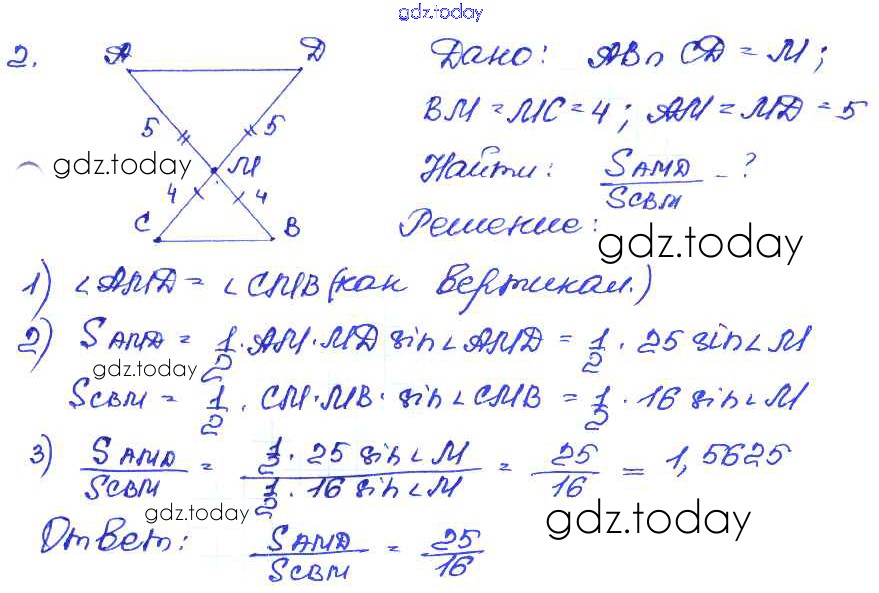 gdz.today
2. A D Дано: AB∩CD = M;
5 5 BM = MC = 4; AM = MD = 5
gdz.today M Найти: S AMD / S CBM - ?
4 4
C B Решение:
gdz.today
1) ∠AMD = ∠CMB (как вертикал.)
2) S AMD = 1/2 · AM · MD sin∠AMD = 1/2 · 25 sin∠M
gdz.today
S CBM = 1/2 · CM · MB · sin∠CMB = 1/2 · 16 sin∠M
3) S AMD / S CBM = (1/2 · 25 sin∠M) / (1/2 · 16 sin∠M) = 25/16 = 1,5625
gdz.today gdz.today
Ответ: S AMD / S CBM = 25/16